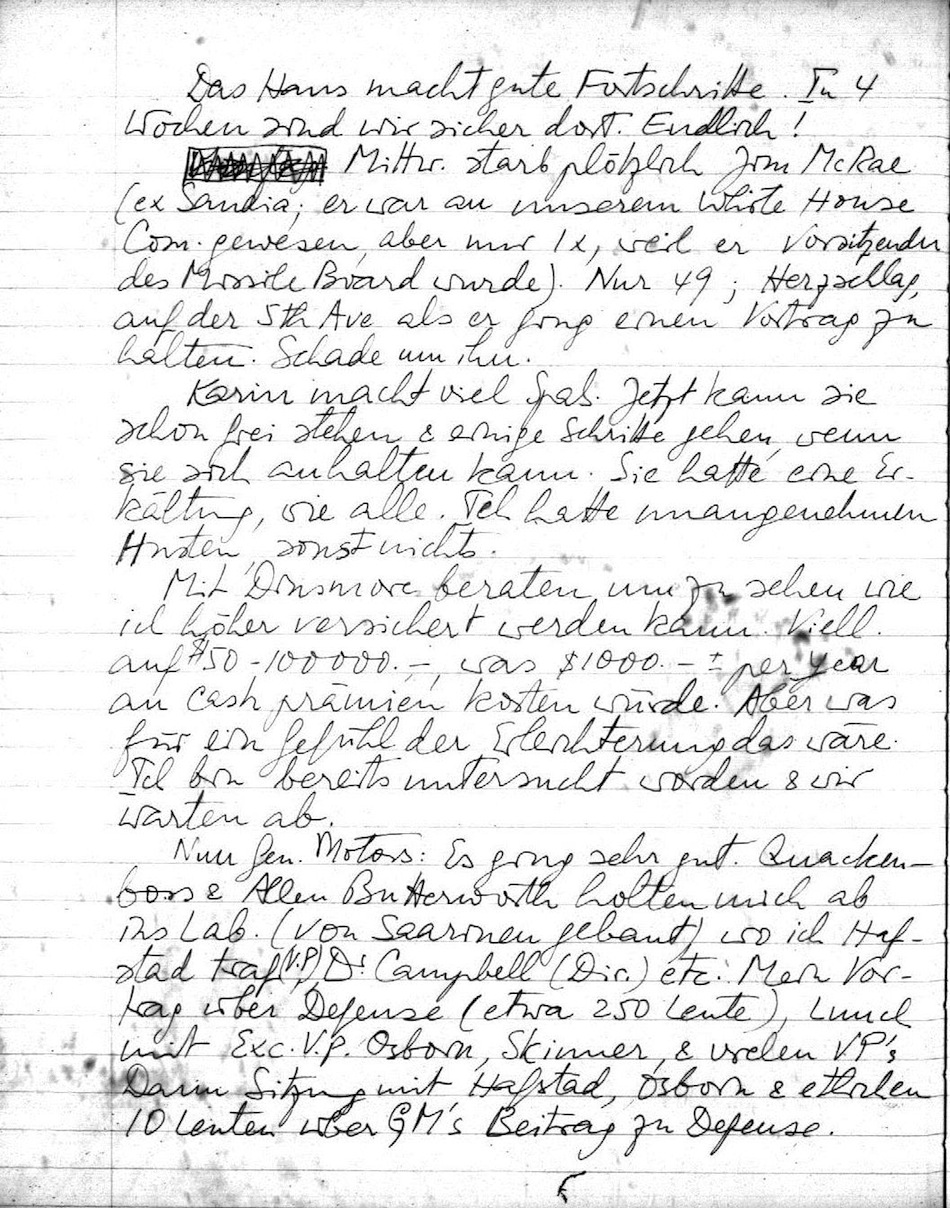 Das Haus macht gute Fortschritte. In 4
Wochen sind wir sicher dort. Endlich!
Mittw. starb plötzlich Jim McRae
(ex Sandia; er war an unserem White House
Com. gewesen, aber nur 1x, weil er Vorsitzender
des Missile Board wurde). Nur 49; Herzschlag,
auf der 5th Ave als er ging einen Vortrag zu
halten. Schade um ihn.
Karin macht viel Spaß. Jetzt kann sie
schon frei stehen & einige Schritte gehen, wenn
sie sich anhalten kann. Sie hatte eine Er-
kältung, wie alle. Ich hatte unangenehmen
Husten, sonst nichts.
Mit Dinsmore beraten, um zu sehen wie
ich höher versichert werden kann. Viell.
auf $50-100000.-, was $1000.- ± per year
an cash prämien kosten würde. Aber was
für ein Gefühl der Erleichterung das wäre.
Ich bin bereits untersucht worden & wir
warten ab.
Nun Gen. Motors: Es ging sehr gut. Quacken-
boss & Allen Butterworth holten mich ab
ins Lab. (von Saarinen gebaut) wo ich Haf-
stad traf (V.P.), Dr Campbell (Dir.) etc. Mein Vor-
trag über Defense (etwa 250 Leute), Lunch
mit Exc. V.P. Osborn, Skinner, & vielen VP's
Dann Sitzung mit Hafstad, Osborn & etlichen
10 Leuten über GM's Beitrag zu Defense.